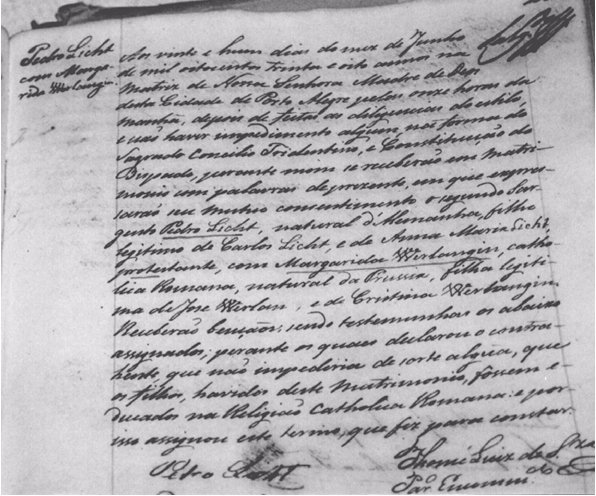 Pedro Licht
com Marga-
rida Werlangin
Aos vinte e hum dias do mez de Junho
de mil oitocentos trinta e oito annos na
Matriz de Nossa Senhora Madre de Deos
desta Cidade de Porto Alegre pelas onze horas da
manhã, depois de feitas as diligencias do estilo,
e não haver impedimento algum, na forma do
Sagrado Concilio Tridentino, e Constituição do
Bispado, perante mim se receberão em Matri-
monio com palavras de prezente, em que expres-
sarão seu mutuo consentimento o segundo Sar-
gento Pedro Licht, natural d'Alemanha, filho
legitimo de Carlos Licht, e de Anna Maria Licht,
protestante, com Margarida Werlangin, catho-
lica Romana, natural da Prussia, filha legiti-
ma de Jose Werlan, e de Cristina Werlangin.
Receberão bençãos, sendo testemunhas os abaixo
assignados, perante os quaes declarou o contra-
hente, que não impediria de sorte algũa, que
os filhos, havidos deste Matrimonio, fossem e-
ducados na Religião Catholica Romana: e por
isso assignou este termo, que fiz para constar.
Pedro Licht
Thomé Luiz de Souza